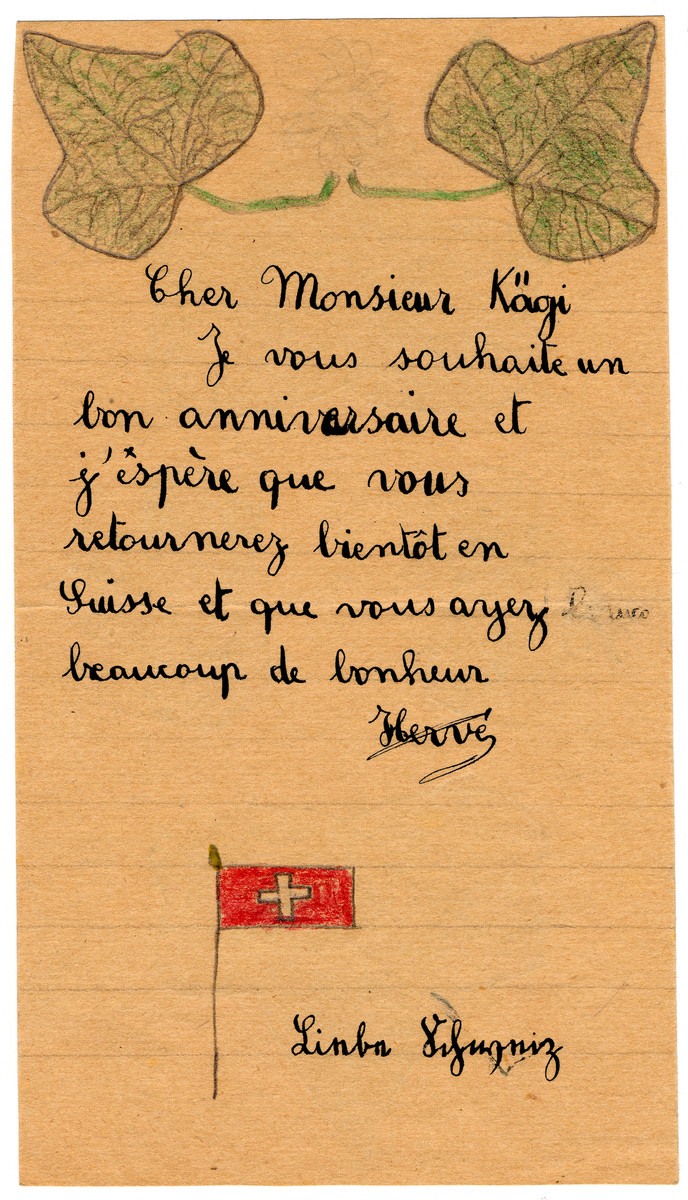 Cher Monsieur Kägi
Je vous souhaite un
bon anniversaire et
j'éspère que vous
retournerez bientôt en
Suisse et que vous ayez
beaucoup de bonheur
Hervé
Liebe Schweiz